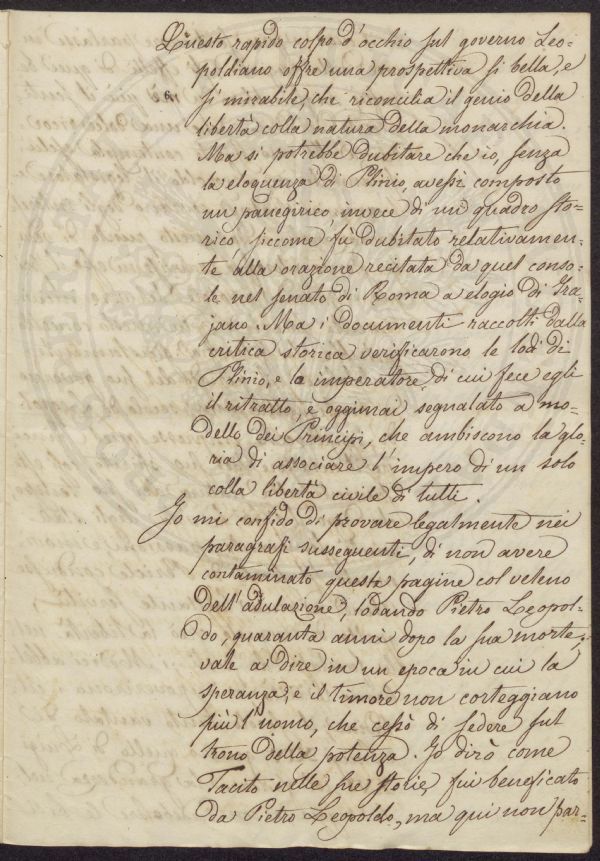 Questo rapido colpo d'occhio sul governo Leo-
poldiano offre una prospettiva si bella, e
si mirabile, che riconcilia il genio della
libertà colla natura della monarchia.
Ma si potrebbe dubitare che io, senza
la eloquenza di Plinio, avessi composto
un panegirico, invece di un quadro sto-
rico, siccome fù dubitato relativamen-
te alla orazione recitata da quel conso-
le nel senato di Roma a elogio di Tra-
jano. Ma i documenti raccolti dalla
critica storica verificarono le lodi di
Plinio, e lo imperatore, di cui fece egli
il ritratto, e oggimai segnalato a mo-
dello dei Principi, che ambiscono la glo-
ria di associare l'impero di un solo
colla libertà civile di tutti.
Io mi confido di provare legalmente nei
paragrafi susseguenti, di non avere
contaminato queste pagine col veleno
dell'adulazione, lodando Pietro Leopol-
do, quaranta anni dopo la sua morte,
vale a dire in un epoca in cui la
speranza, e il timore non corteggiano
più l'uomo, che cessò di sedere sul
trono della potenza. Io dirò come
Tacito nelle sue storie, fui beneficato
da Pietro Leopoldo, ma qui non par-